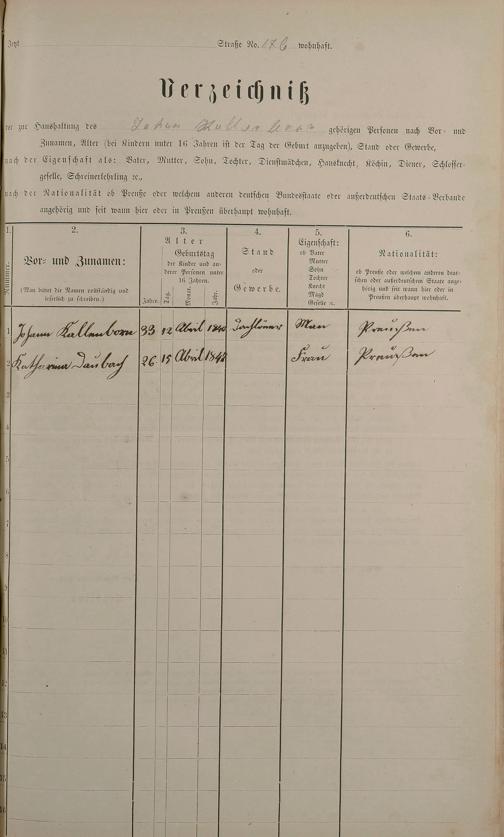 Jetzt Straße No. 176 wohnhaft.
Verzeichniß
der zur Haushaltung des Johan Kallenborn gehörigen Personen nach Vor- und
Zunamen, Alter (bei Kindern unter 16 Jahren ist der Tag der Geburt anzugeben), Stand oder Gewerbe,
nach der Eigenschaft als: Vater, Mutter, Sohn, Tochter, Dienstmädchen, Hausknecht, Köchin, Diener, Schlosser-
geselle, Schreinerlehrling ꝛc.,
nach der Nationalität ob Preuße oder welchem anderen deutschen Bundesstaate oder außerdeutschen Staats-Verbande
angehörig und seit wann hier oder in Preußen überhaupt wohnhaft.
1.
Nummer.
2.
Vor- und Zunamen:
(Man bittet die Namen vollständig und
leserlich zu schreiben.)
3.
Alter
Geburtstag
der Kinder und an-
derer Personen unter
16 Jahren.
Jahre.
Tag.
Monat.
Jahr.
4.
Stand
oder
Gewerbe.
5.
Eigenschaft:
ob Vater
Mutter
Sohn
Tochter
Knecht
Magd
Geselle ꝛc.
6.
Nationalität:
ob Preuße oder welchem anderen deut-
schen oder außerdeutschen Staate ange-
hörig und seit wann hier oder in
Preußen überhaupt wohnhaft.
1 Johann Kallenborn 33 12 April 1840 Man Preußen
2 Katharina Daubach 26 15 April Frau Preußen
3
4
5
6
7
8
9
10
11
12
13
14
15
16